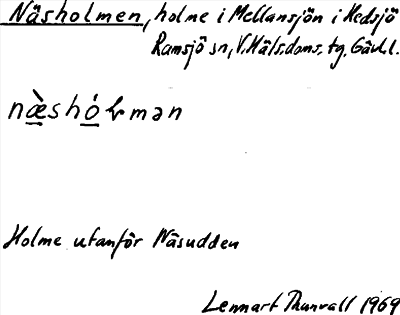 Näsholmen, holme i Mellansjön i Hedsjö
Ramsjö sn, V. Häls. doms. tg. Gävl. l.
næ̀shó̱lmən
Holme utanför Näsudden
Lennart Thunvall 1969